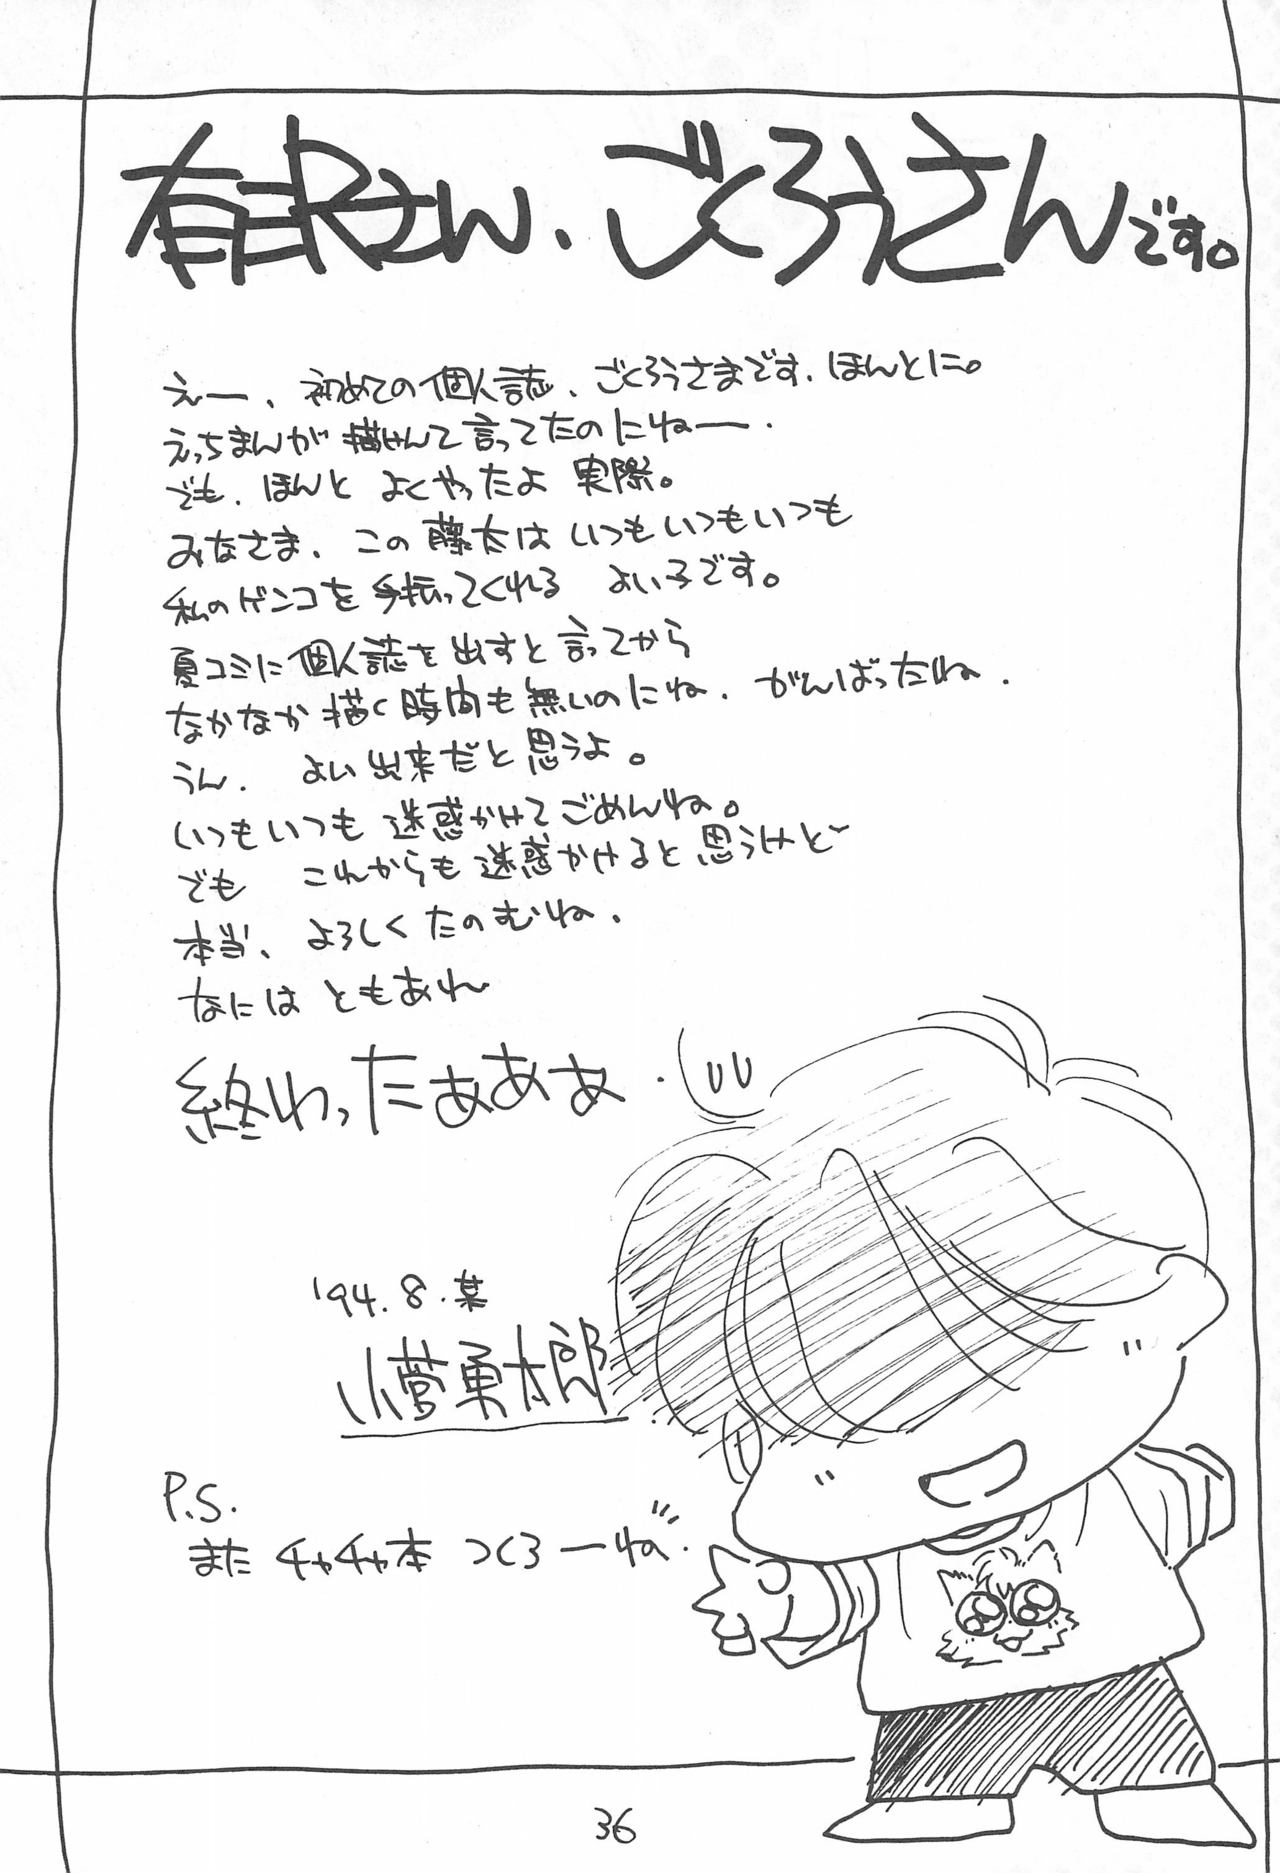 有沢さん、ごくろうさんです。
えー、初めての個人誌、ごくろうさまです、ほんとに。
えっちまんが描けんて言ってたのにねー.
でも、ほんと よくやったよ 実際。
みなさま、この藤太は いつもいつもいつも
私のゲンコを手伝ってくれる よい子です。
夏コミに個人誌を出すと言ってから
なかなか描く時間も無いのにね、がんばったね.
うん、 よい出来だと思うよ。
いつもいつも 迷惑かけてごめんね。
でも これからも迷惑かけると思うけど~
本当、よろしくたのむね.
なには ともあれ
終わったぁぁぁ.
'94.8.某
小菅勇太郎
P.S.
また チャチャ本 つくろーね".
36